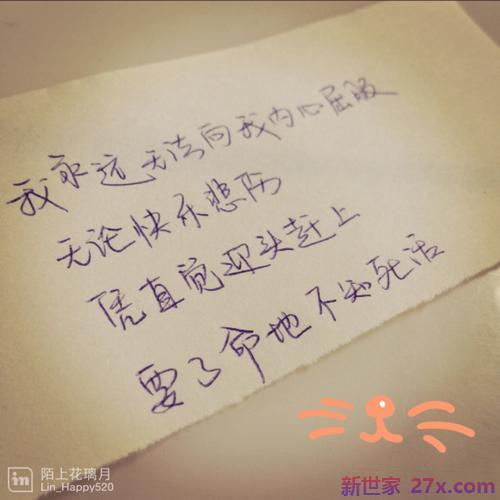 我永远无法向我内心屈服
无论快乐悲伤
凭直觉迎头赶上
要了命地不知死活
in
陌上花璃月
Lin_Happy520
新世家 27x.com